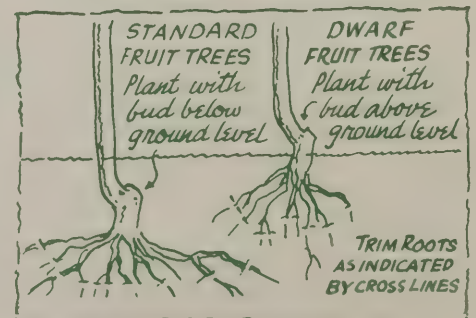 STANDARD
FRUIT TREES
Plant with
bud below
ground level
DWARF
FRUIT TREES
Plant with
bud above
ground level
TRIM ROOTS
AS INDICATED
BY CROSS LINES